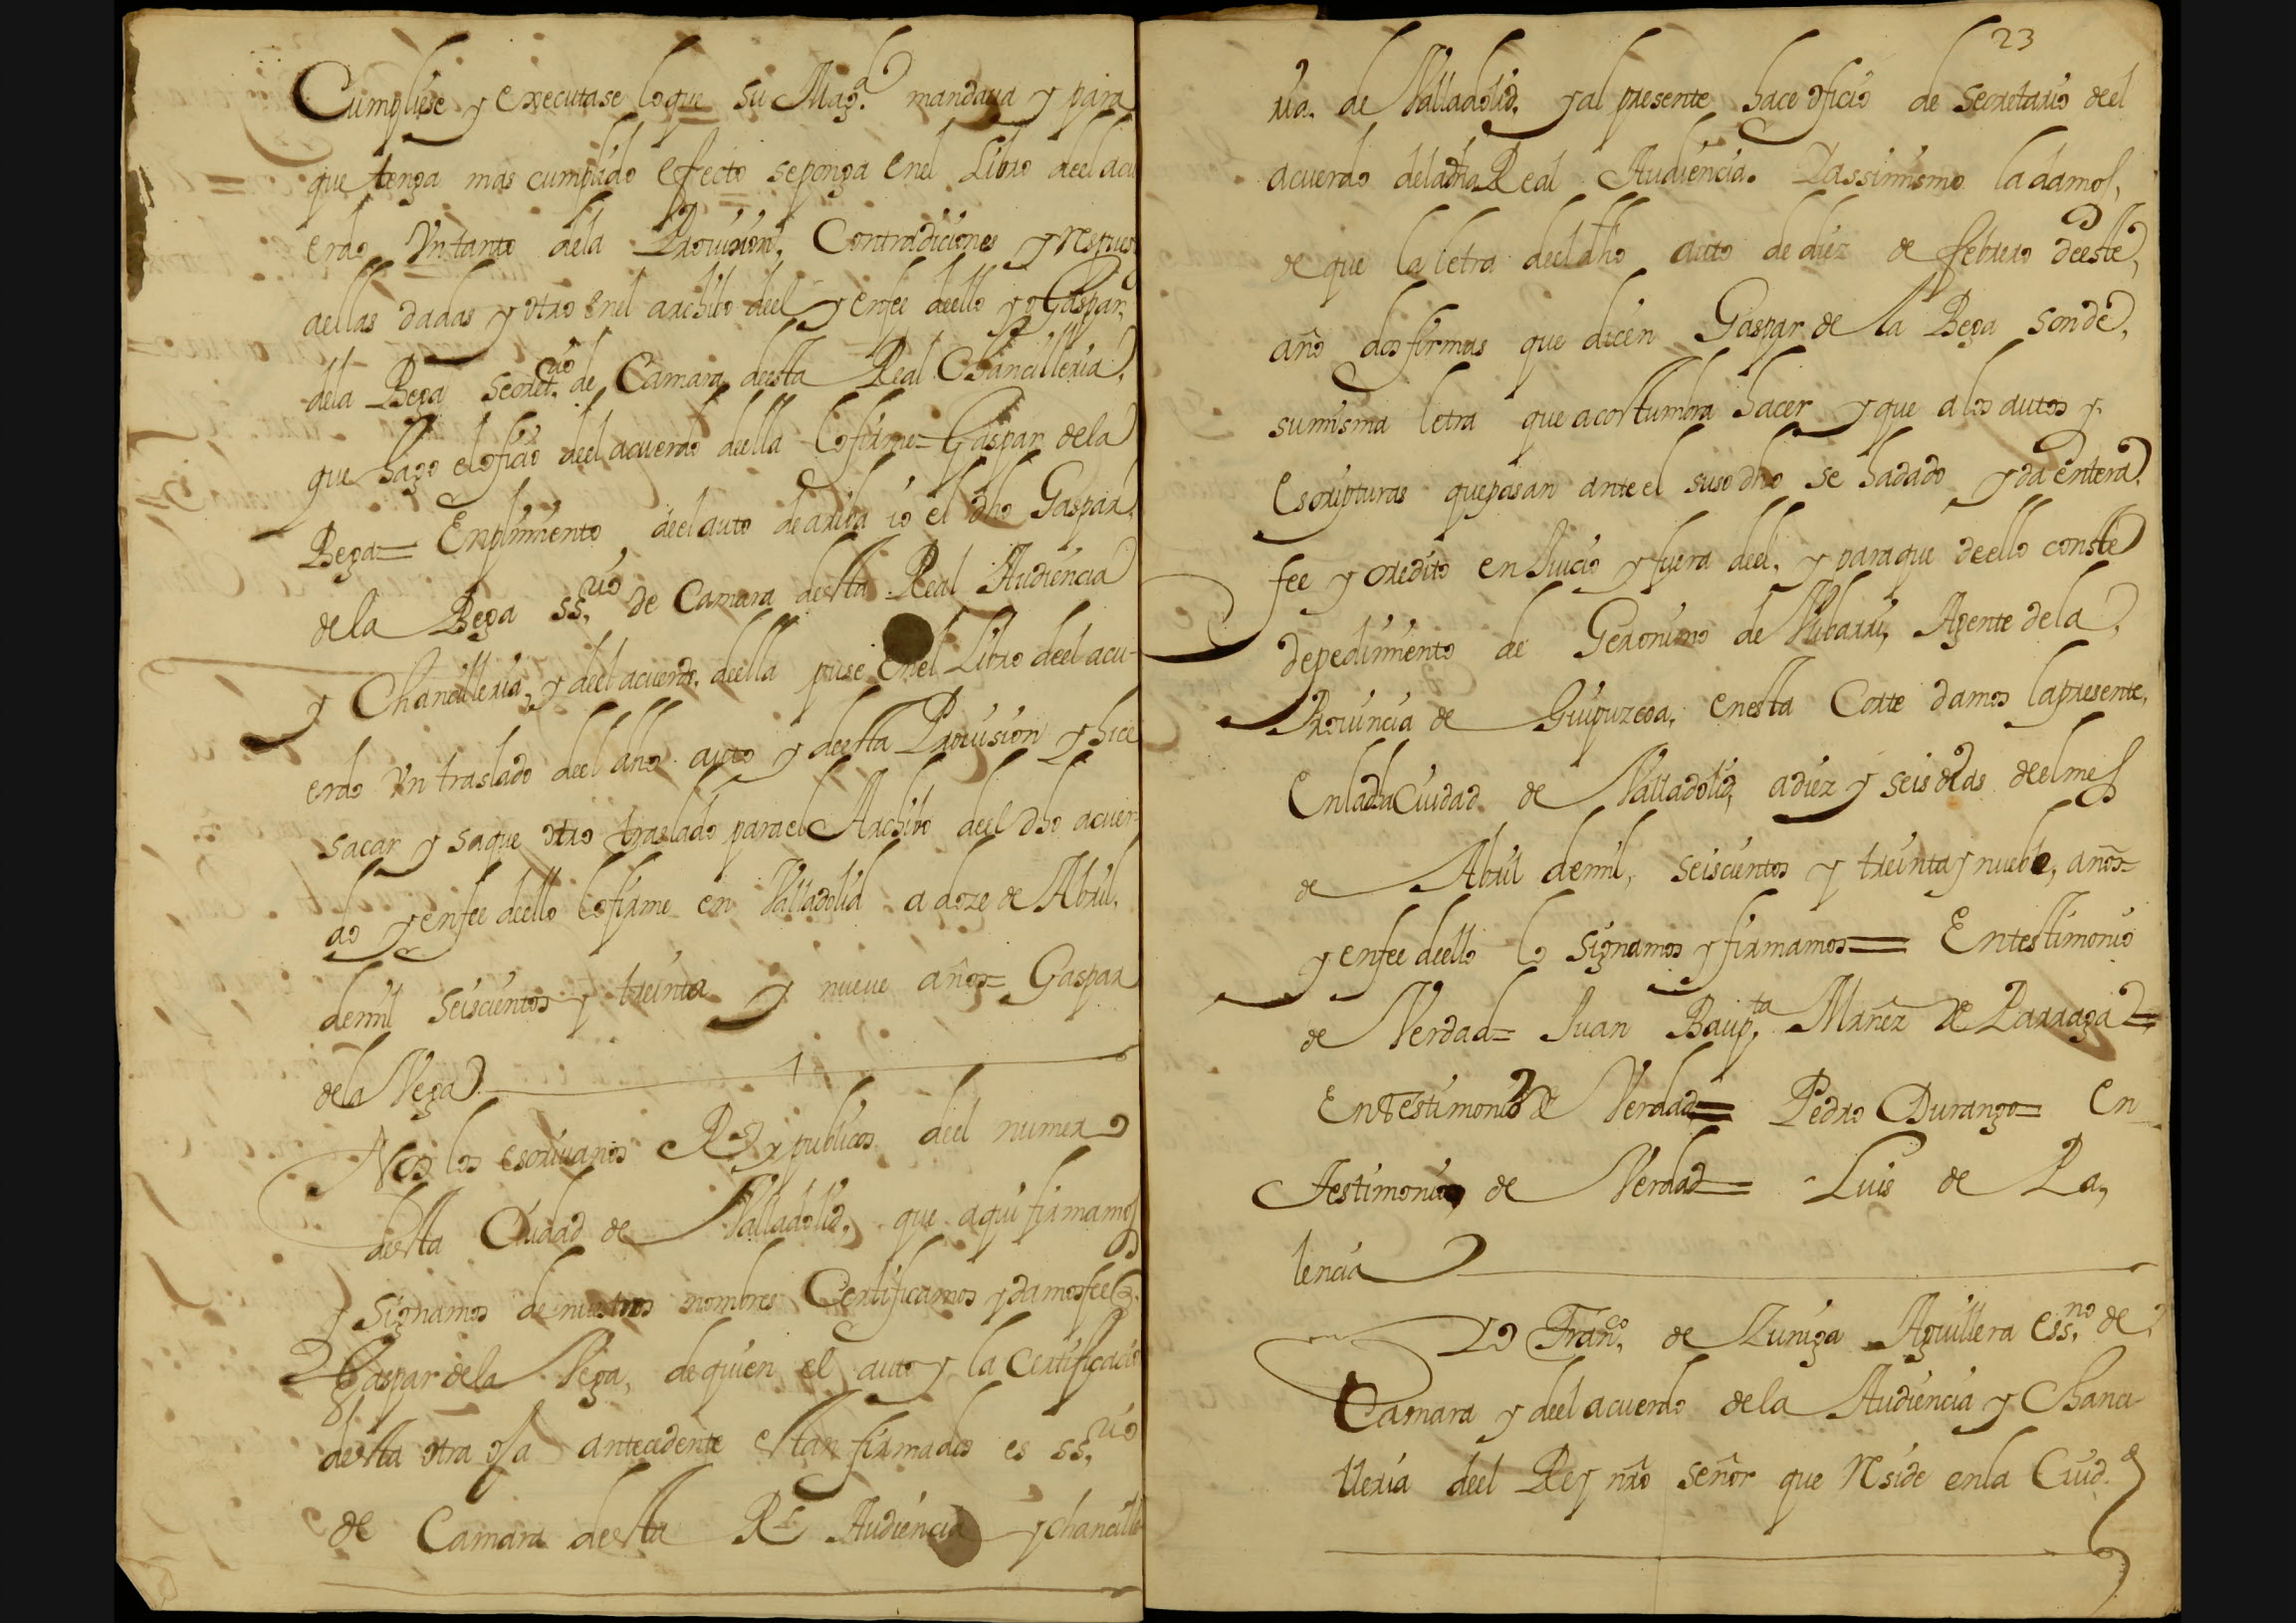 Cumpliese y executase loque su Magd. mandava y para
que tenga mas cumplido efecto seponga enel Libro deel acu
erdo Vn tanto dela Provision, Contradiciones y respues
aellas dadas y otro enel archibo deel y enfee deello yo Gaspar
dela Bega secretrio. de Camara deesta Real Chancilleria,
que hago el oficio deel acuerdo deella lofirme= Gaspar dela
Bega= Enplimiento deel auto de arriba io el dho Gaspar
de la Bega ss.rio de Camara desta Real Audiencia
y Chancilleria, y deel acuerdo. deella puse Enel Libro deel acu-
erdo Vn traslado deel dho auto y deesta Provision y hice
sacar y saque otro traslado para el Archibo deel dho acuer-
do y enfee deello lofirme en Valladolid a doze de Abril,
demil seiscientos y treinta y nueve años= Gaspar
dela Vega
Nos los escrivanos Rs. y publicos deel numero
desta Ciudad de Valladolid, que aqui firmamos
y signamos de nuestros nombres Certificamos y damos fee q.
Gaspar dela Vega, de quien el auto y la Certificacio
desta otra oja antecedente estan firmados es ss.rio
de Camara desta Rl Audiencia y chancille
23
ria. de Valladolid, y al presente hace oficio de secretario deel
acuerdo dela dha Real Audiencia. Y assimismo la damos,
de que la letra deel dho auto de diez de febrero deeste,
año dos firmas que dicen Gaspar de la Bega son de,
su misma letra que acostumbra hacer y que a los autos y
escripturas que pasan ante el suso dho se ha dado y da entera
fee y credito en Juicio y fuera deel, y para que deello conste
depedimiento de Geronimo de Ribarri, Agente dela,
Provincia de Guipuzcoa, enesta Corte damos la presente,
En la dha Ciudad de Valladolid, a diez y seis dias deel mes
de Abril demil, seiscientos y treinta y nuebe, años=
y enfee deello lo signamos y firmamos= En testimonio
de Verdad= Juan Baup.ta Mrñez de Parraga=
En Testimonio de Verdad= Pedro Durango= En
Testimonio, de Verdad= Luis de Pa,
lencia
Yo Franco. de Zuniga Aguillera ess.no de
Camara y deel acuerdo dela Audiencia y Chanci
lleria deel Rey nro señor que reside enla Ciud.